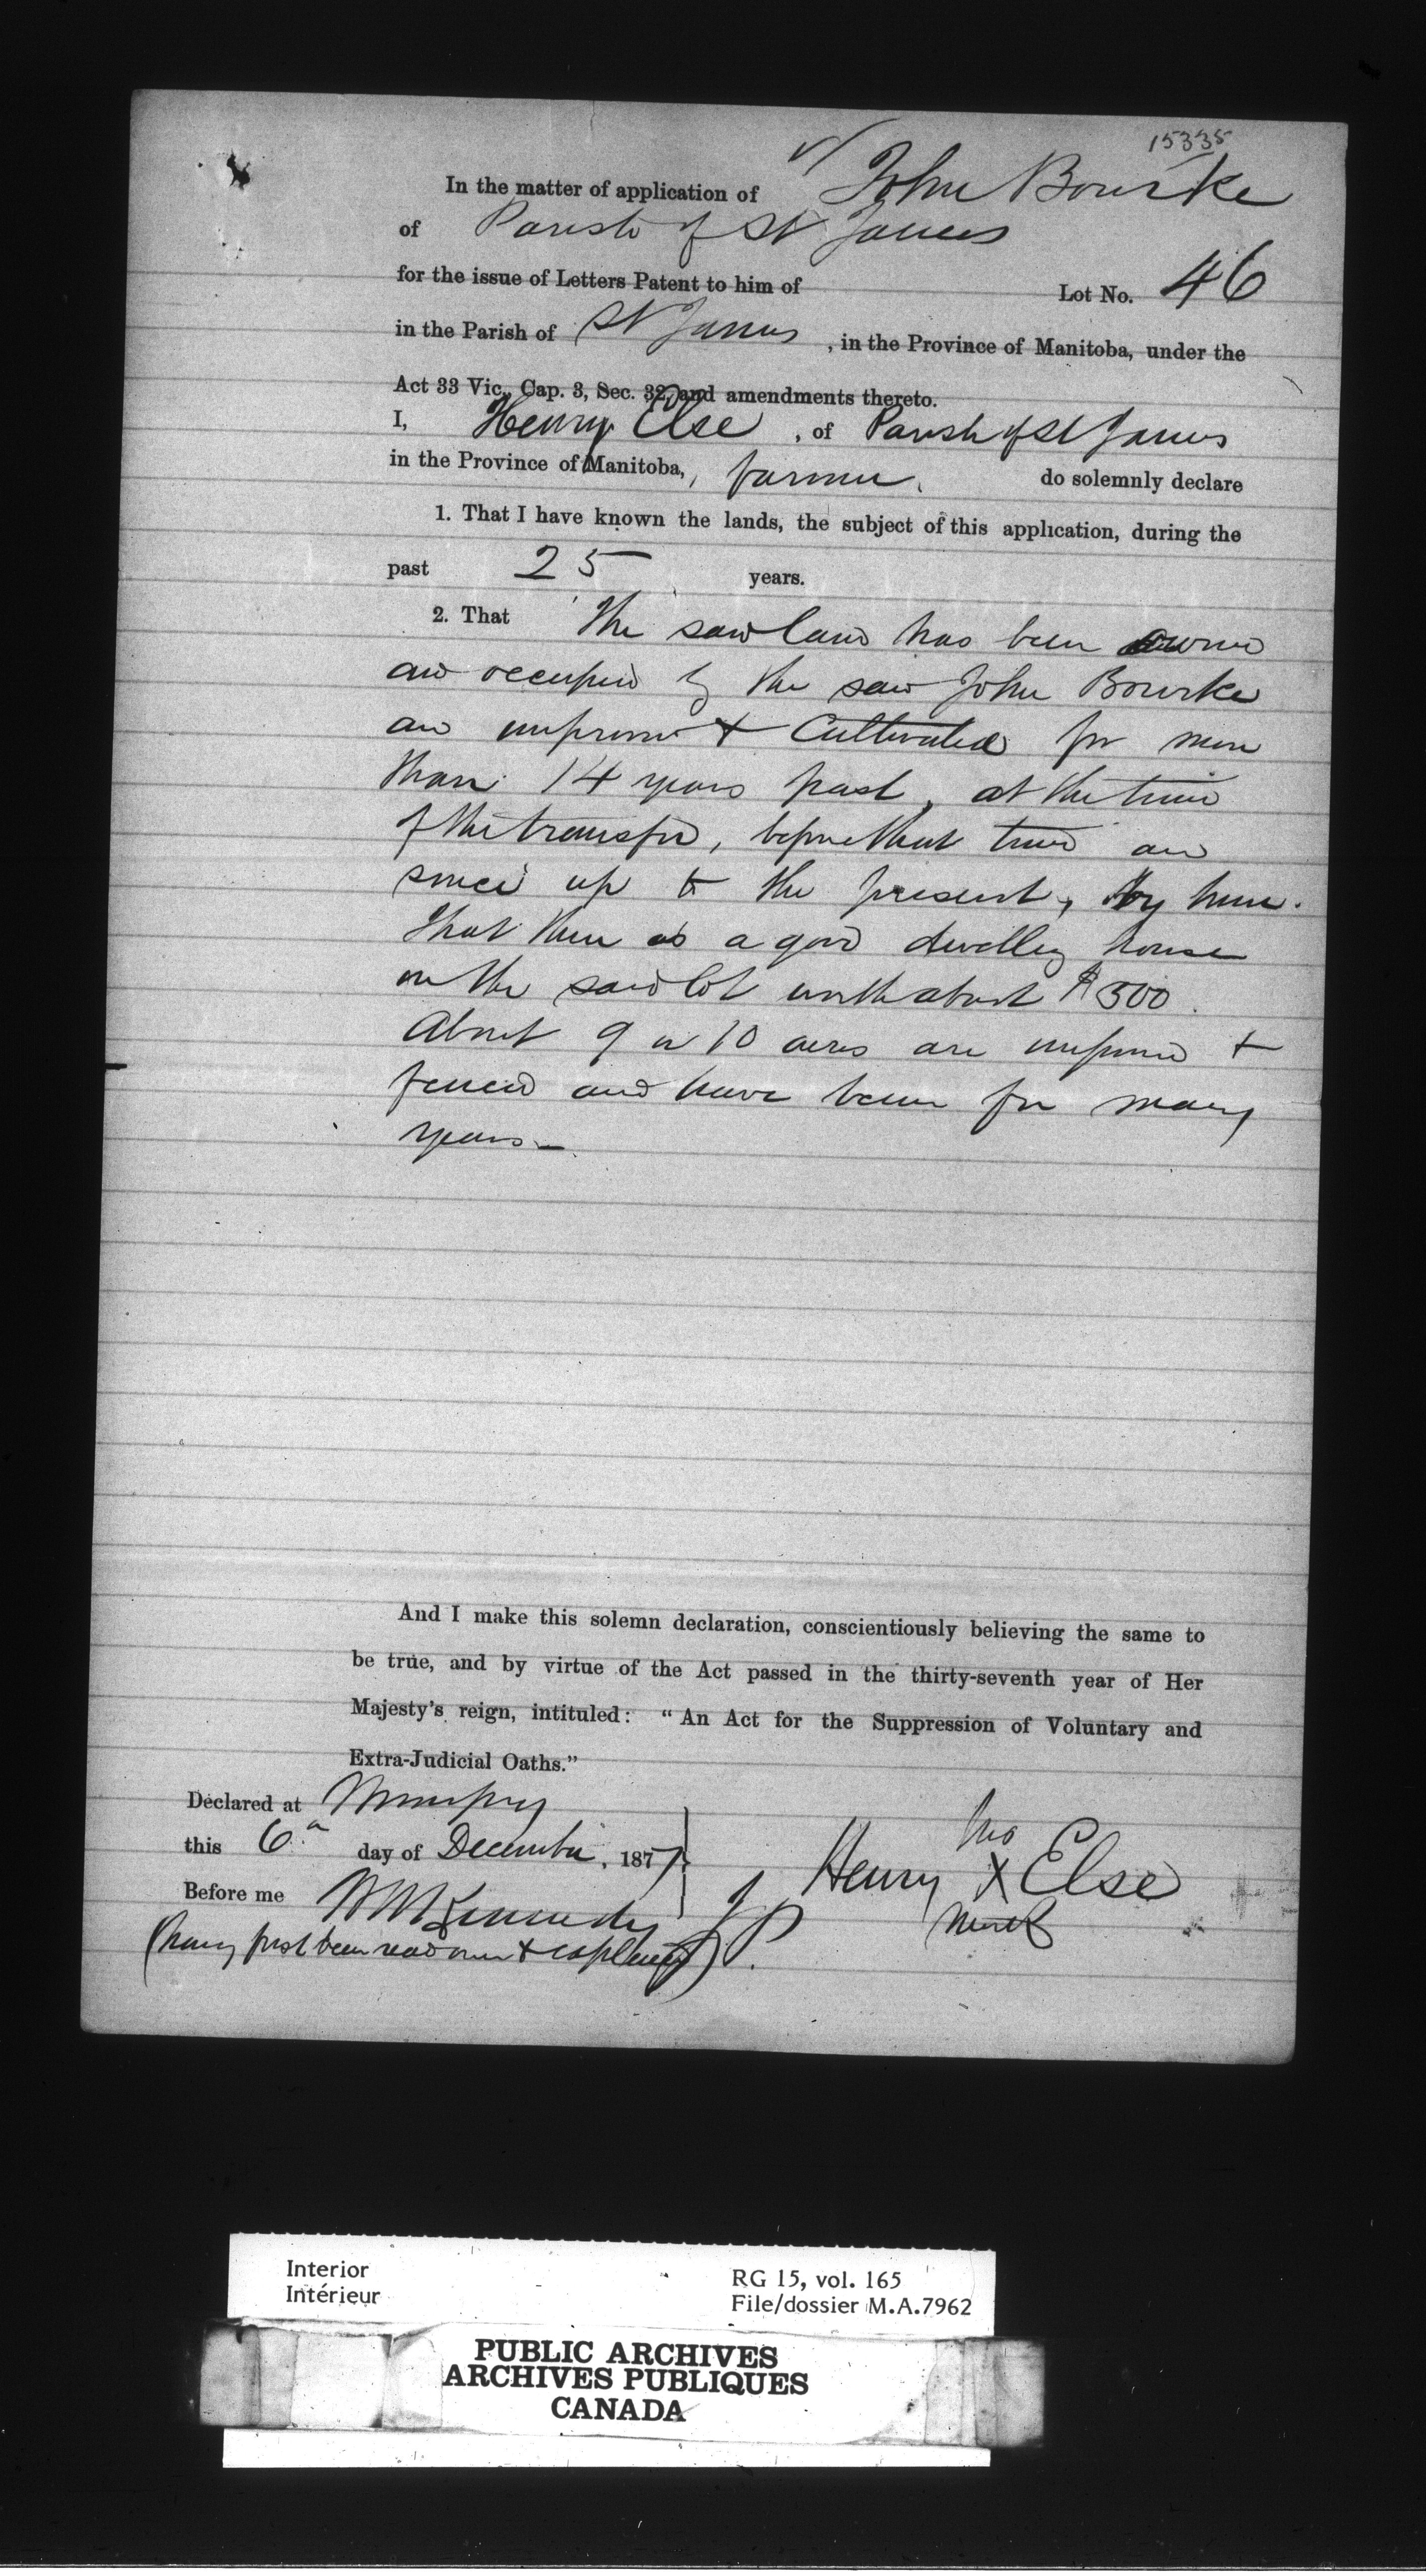 15335
In the matter of application of John Bourke
of Parish of St James
for the issue of Letters Patent to him of Lot No. 46
in the Parish of St James, in the Province of Manitoba, under the
Act 33 Vic., Cap. 3, Sec. 32, and amendments thereto.
I, Henry Else, of Parish of St James
in the Province of Manitoba, farmer, do solemnly declare
1. That I have known the lands, the subject of this application, during the
past 25 years.
2. That the said land has been owned
and occupied by the said John Bourke
and improved & Cultivated for more
than 14 years past, at the time
of the transfer, before that time and
since up to the present, by him.
That there is a good dwelling house
on the said lot worth about $500.
About 9 or 10 acres are improved &
fenced and have been for many
years—
And I make this solemn declaration, conscientiously believing the same to
be true, and by virtue of the Act passed in the thirty-seventh year of Her
Majesty's reign, intituled: "An Act for the Suppression of Voluntary and
Extra-Judicial Oaths."
Declared at Winnipeg
this 6th day of December, 1877
his
Henry X Else
mark
Before me W N Kennedy JP.
(having first been read over & explained)
Interior
Intérieur
RG 15, vol. 165
File/dossier M.A.7962
PUBLIC ARCHIVES
ARCHIVES PUBLIQUES
CANADA